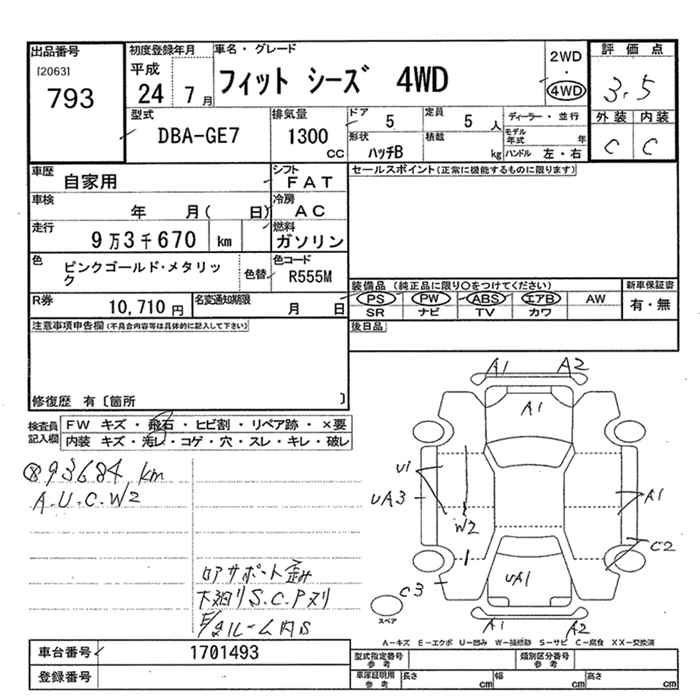 出品番号 初度登録年月 車名・グレード 2WD ・ 4WD 評価点
[2063]
793
平成 24 7月
フィット シーズ 4WD
3.5
外装 内装
C C
型式 DBA-GE7
排気量 1300 CC
ドア 5 定員 5 人 ディーラー・並行
形状 ハッチB 積載 kg モデル年式 年
ハンドル 左・右
車歴 自家用 シフト FAT セールスポイント(正常に機能するものに限ります)
車検 年 月( 日) 冷房 AC
走行 9万3千670 km 燃料 ガソリン
色 ピンクゴールド・メタリック 色替 色コード R555M
装備品 (純正品に限り○をつけてください) 新車保証書
PS PW ABS エアB AW 有・無
SR ナビ TV カワ
R券 10,710円 名変通知期限 月 日
注意事項申告欄(不具合内容等は具体的に記入して下さい) 後日品
修復歴 有〔箇所 〕
検査員記入欄
FW キズ・飛石・ヒビ割・リペア跡・×要
内装 キズ・汚レ・コゲ・穴・スレ・キレ・破レ
93684 km
A.U.C.W2
A1 A2
A1
U1
UA3
W2
A1
C2
C3
UA1
A1 A2
スペア
ロアサポート歪み
下廻りS.C.Pヌリ
A-キズ E-エクボ U-凹み W-補修跡 S-サビ C-腐食 XX-交換済
車台番号 1701493
登録番号
型式指定番号 参考 類別区分番号 参考
車庫証明用 参考 長さ cm 幅 cm 高さ cm